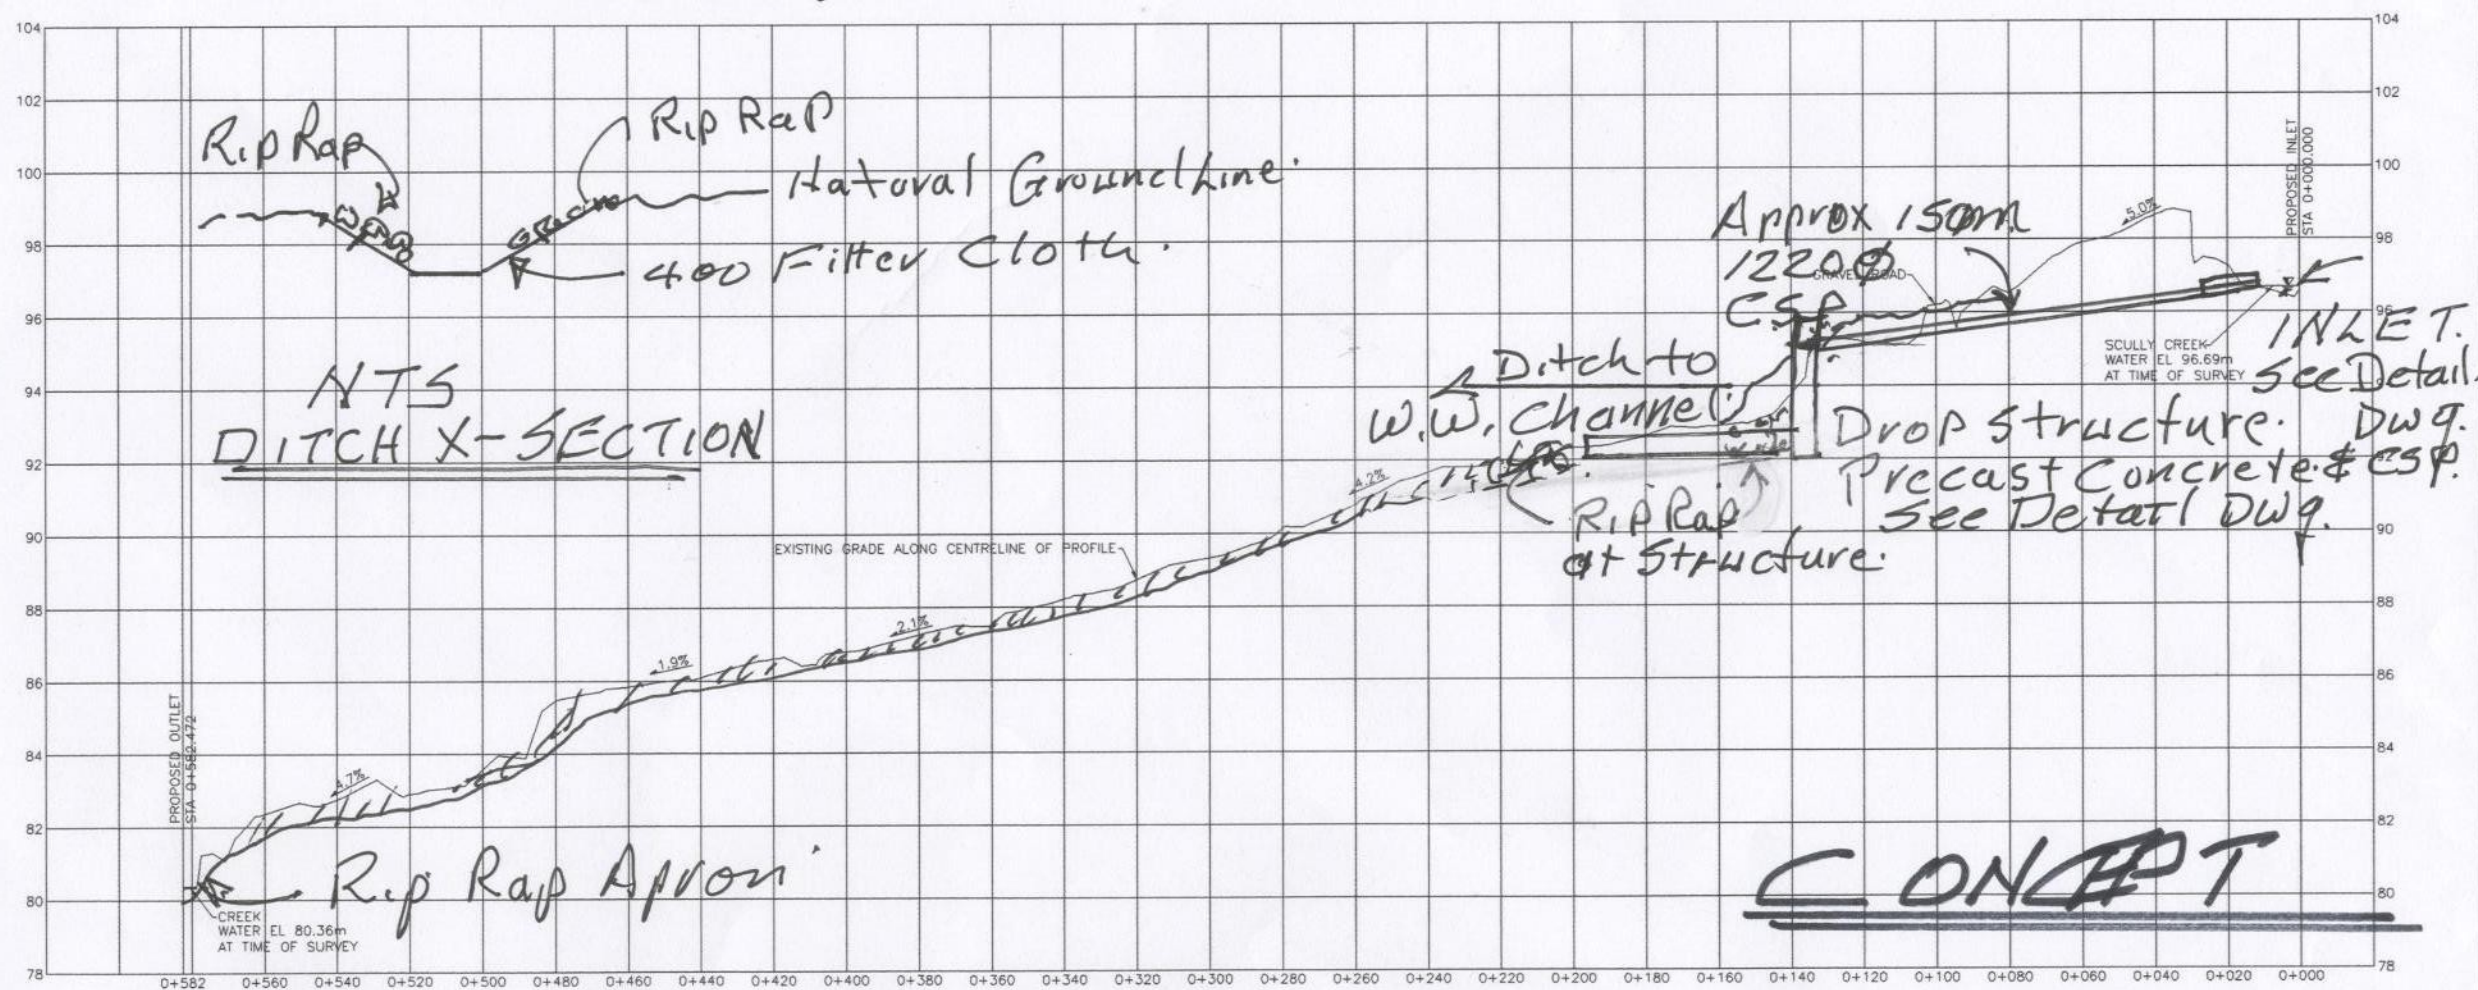 104
102
100
98
96
94
92
90
88
86
84
82
80
78
104
102
100
98
96
90
88
86
84
82
80
78
Rip Rap
Rip Rap
Natural Ground Line.
400 Filter Cloth.
NTS
DITCH X-SECTION
Approx 150m
1220Ø
CSP
GRAVEL ROAD
5.0%
PROPOSED INLET
STA 0+000.000
SCULLY CREEK
WATER EL 96.69m
AT TIME OF SURVEY
INLET.
See Detail.
Dwg.
Ditch to
W.W. Channel.
Drop Structure.
Precast Concrete & CSP.
See Detail Dwg.
Rip Rap
at Structure.
4.2%
EXISTING GRADE ALONG CENTRELINE OF PROFILE
2.1%
1.9%
4.7%
PROPOSED OUTLET
STA 0+582.472
Rip Rap Apron
CREEK
WATER EL 80.36m
AT TIME OF SURVEY
CONCEPT
0+582 0+560 0+540 0+520 0+500 0+480 0+460 0+440 0+420 0+400 0+380 0+360 0+340 0+320 0+300 0+280 0+260 0+240 0+220 0+200 0+180 0+160 0+140 0+120 0+100 0+080 0+060 0+040 0+020 0+000